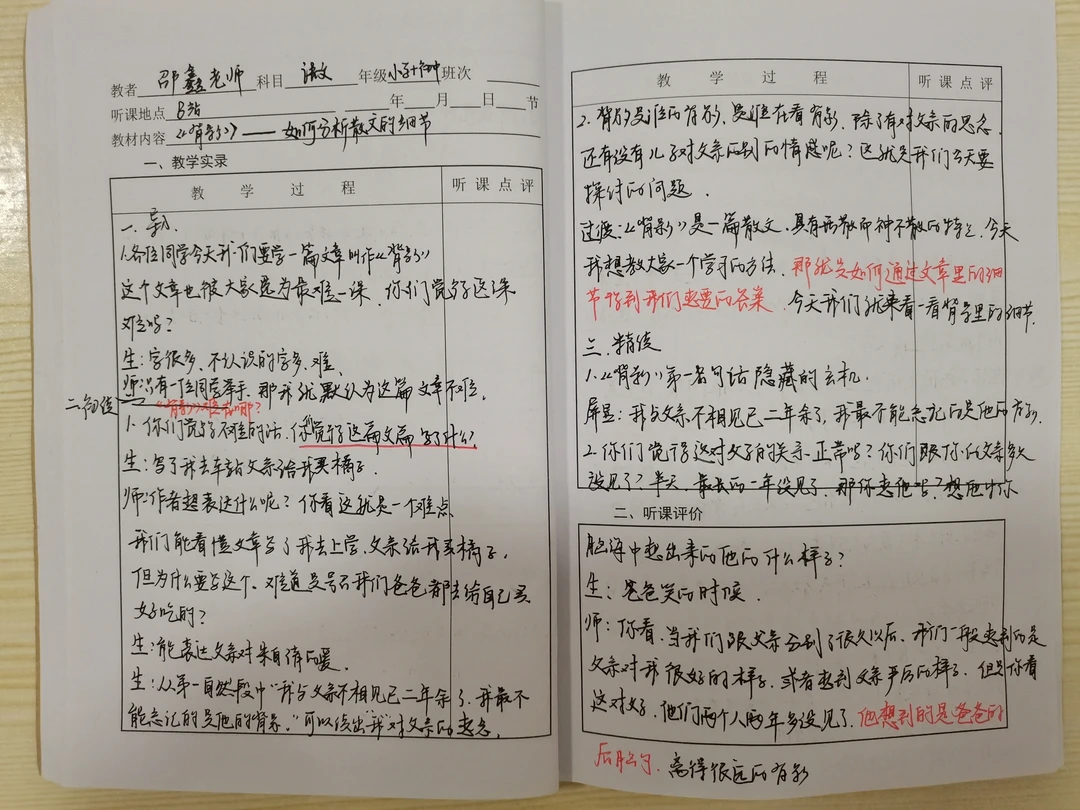 教者 邵鑫老师 科目 语文 年级 小学+初中 班次
听课地点 B站 年 月 日 节
教材内容 《背影》——如何分析散文的细节
一、教学实录
教 学 过 程 听 课 点 评
一. 导入
1.各位同学今天我们要学一篇文章叫作《背影》
这个文章也被大家选为最难一课. 你们觉得这课
难吗?
生:字很多、不认识的字多、难.
师:只有一位同学举手. 那我就默认为这篇文章不难.
二、初读
《背影》难在哪?
1. 你们觉得不难的话. 你觉得这篇文篇写了什么?
生:写了我去车站父亲给我买橘子.
师:作者想表达什么呢? 你看这就是一个难点.
我们能看懂文章写了我去上学. 父亲给我买橘子.
但为什么要写这个. 难道是号召我们爸爸都去给自己买
好吃的?
生:能表达父亲对朱自清的爱.
生:从第一自然段中"我与父亲不相见已二年余了. 我最不
能忘记的是他的背影."可以读出"我"对父亲的思念.
教 学 过 程 听 课 点 评
2. 背影是谁的背影, 是谁在看背影, 除了有对父亲的思念.
还有没有儿子对父亲的别的情感呢? 这就是我们今天要
探讨的问题.
过渡:《背影》是一篇散文. 具有形散而神不散的特点. 今天
我想教大家一个学习的方法. 那就是如何通过文章里的细
节得到我们想要的答案. 今天我们就来看一看背影里的细节.
三. 精读
1.《背影》第一句话隐藏的玄机.
屏显:我与父亲不相见已二年余了. 我最不能忘记的是他的背影.
2. 你们觉得这对父子的关系正常吗? 你们跟你的父亲多久
没见了? 半天. 最长的一年没见了. 那你想他吗? 想他时你
二、听课评价
脑海中想出来的他的什么样子?
生:爸爸笑的时候.
师:你看. 当我们跟父亲分别了很久以后. 我们一般想到的是
父亲对我很好的样子. 或者想到父亲严厉的样子. 但是你看
这对父子. 他们两个人两年多没见了. 他想到的是爸爸的
后脑勺. 离得很远的背影